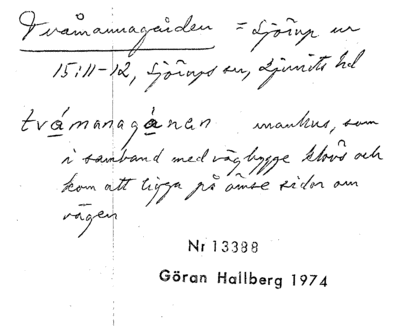 Tvåmannagården = Sjörup nr
15:11-12, Sjörups sn, Ljunits hd
tvámanagánen manhus, som
i samband med vägbygge klövs och
kom att ligga på ömse sidor om
vägen
Nr 13388
Göran Hallberg 1974